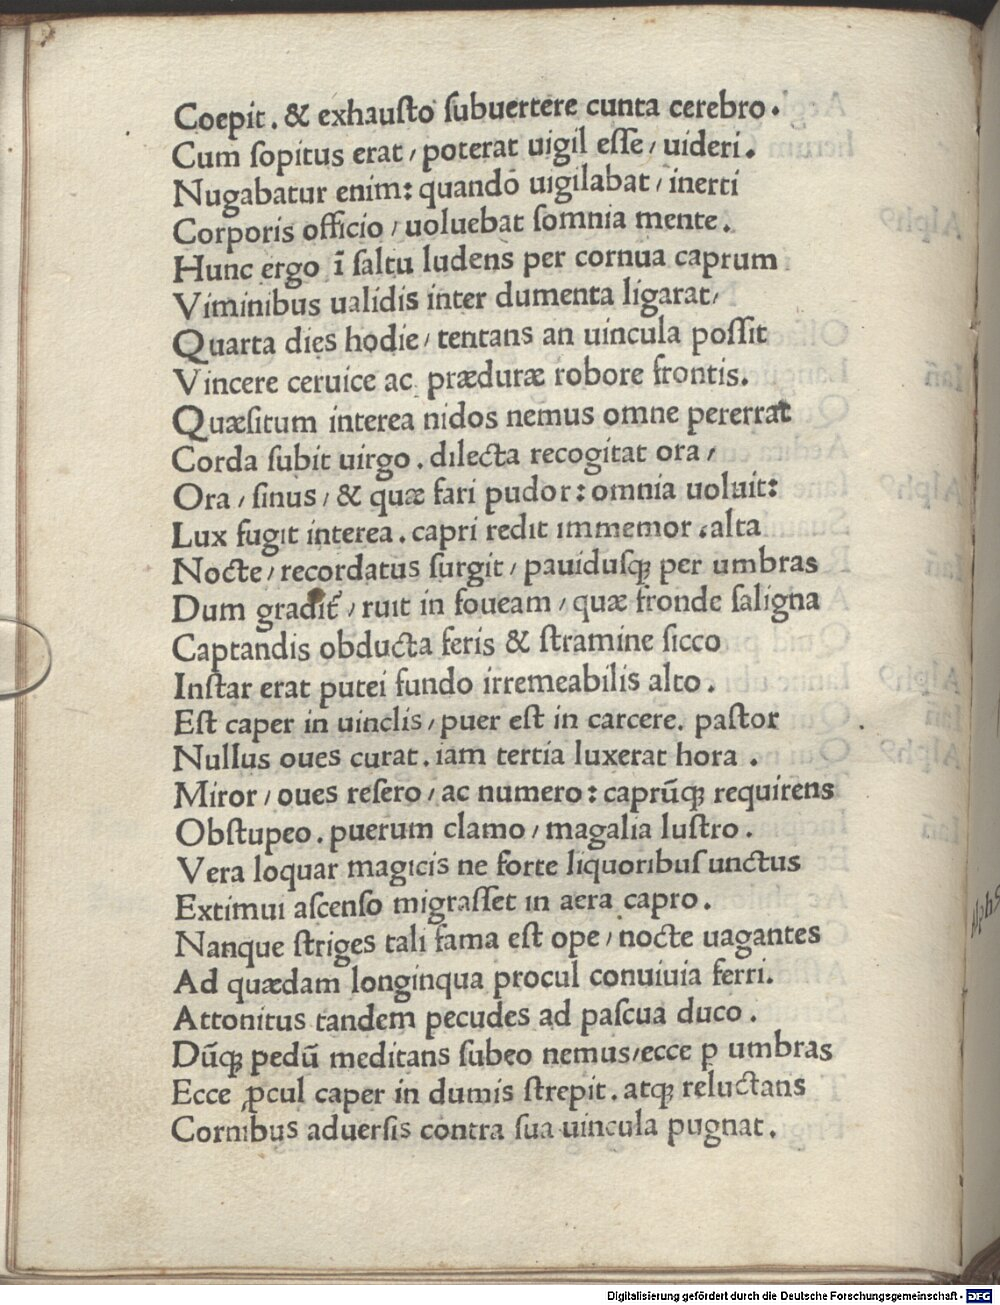 Coepit. & exhauſto ſubuertere cunta cerebro.
Cum ſopitus erat / poterat uigil eſſe / uideri.
Nugabatur enim: quando uigilabat / inerti
Corporis officio / uoluebat ſomnia mente.
Hunc ergo ī ſaltu ludens per cornua caprum
Viminibus ualidis inter dumenta ligarat /
Quarta dies hodie / tentans an uincula poſſit
Vincere ceruice ac præduræ robore frontis.
Quæſitum interea nidos nemus omne pererrat
Corda ſubit uirgo. dilecta recogitat ora /
Ora / ſinus / & quæ fari pudor: omnia uoluit:
Lux fugit interea. capri redit immemor. alta
Nocte / recordatus ſurgit / pauiduſqꝫ per umbras
Dum gradit᷑ / ruit in foueam / quæ fronde ſaligna
Captandis obducta feris & ſtramine ſicco
Inſtar erat putei fundo irremeabilis alto.
Eſt caper in uinclis / puer eſt in carcere. paſtor
Nullus oues curat. iam tertia luxerat hora.
Miror / oues reſero / ac numero: caprūqꝫ requirens
Obſtupeo. puerum clamo / magalia luſtro.
Vera loquar magicis ne forte liquoribuſ unctus
Extimui aſcenſo migraſſet in aera capro.
Nanque ſtriges tali fama eſt ope / nocte uagantes
Ad quædam longinqua procul conuiuia ferri.
Attonitus tandem pecudes ad paſcua duco.
Dūqꝫ pedū meditans ſubeo nemus / ecce ꝑ umbras
Ecce ꝓcul caper in dumis ſtrepit. atqꝫ reluctans
Cornibus aduerſis contra ſua uincula pugnat.
Digitalisierung gefördert durch die Deutsche Forschungsgemeinschaft - DFG